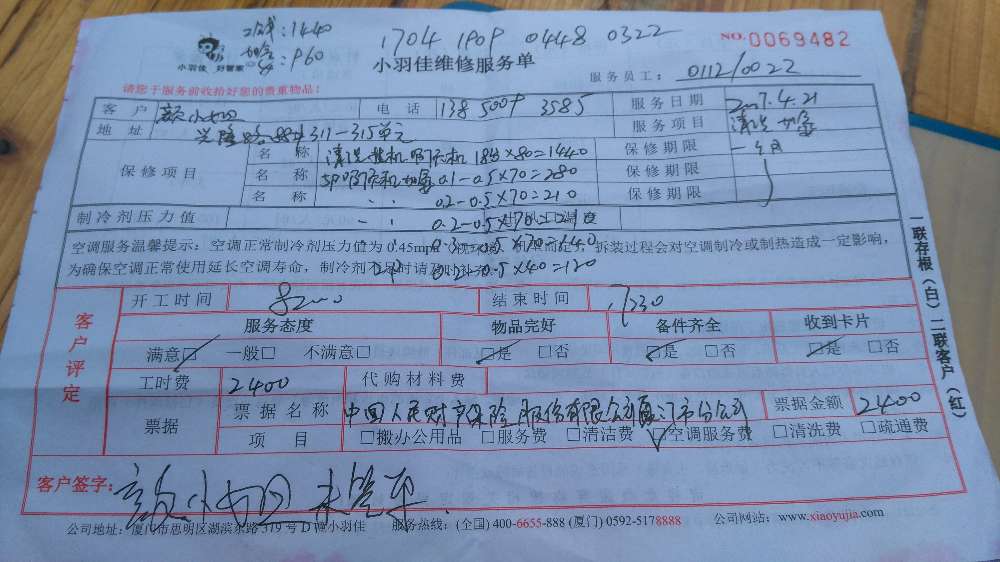 清洗:1440
加氨:960
1704 1909 0448 0322
NO.0069482
小羽佳 好管家
小羽佳维修服务单
服务员工: 0112/0022
请您于服务前收拾好您的贵重物品!
客户 颜小姐 电话 138 5009 3585 服务日期 2017.4.21
地址 兴隆路 311-315单元 服务项目 清洗 加氨
保修项目 名称 清洗挂机 吸顶机 18台×80=1440 保修期限 一个月
名称 5P吸顶机加氨 0.1-0.5×70=280 保修期限
名称 0.2-0.5×70=210 保修期限
制冷剂压力值 0.2-0.5×70=210
空调服务温馨提示:空调正常制冷剂压力值为0.45mpa 拆装过程会对空调制冷或制热造成一定影响,
0.3-0.5×70=140
为确保空调正常使用延长空调寿命,制冷剂不足时请及时
0.2-0.5×40=120
客户评定
开工时间 8:00 结束时间 17:30
服务态度 物品完好 备件齐全 收到卡片
满意□ 一般□ 不满意□ □是 □否 □是 □否 □是 □否
工时费 2400 代购材料费
票据 票据名称 中国人民财产保险股份有限公司厦门市分公司 票据金额 2400
项目 □搬办公用品 □服务费 □清洁费 □空调服务费 □清洗费 □疏通费
客户签字: 颜小姐 未签单
公司地址:厦门市思明区湖滨东路319号D幢小羽佳 服务热线:(全国) 400-6655-888 (厦门) 0592-5178888 公司网站:www.xiaoyujia.com
一联存根(白)二联客户(红)